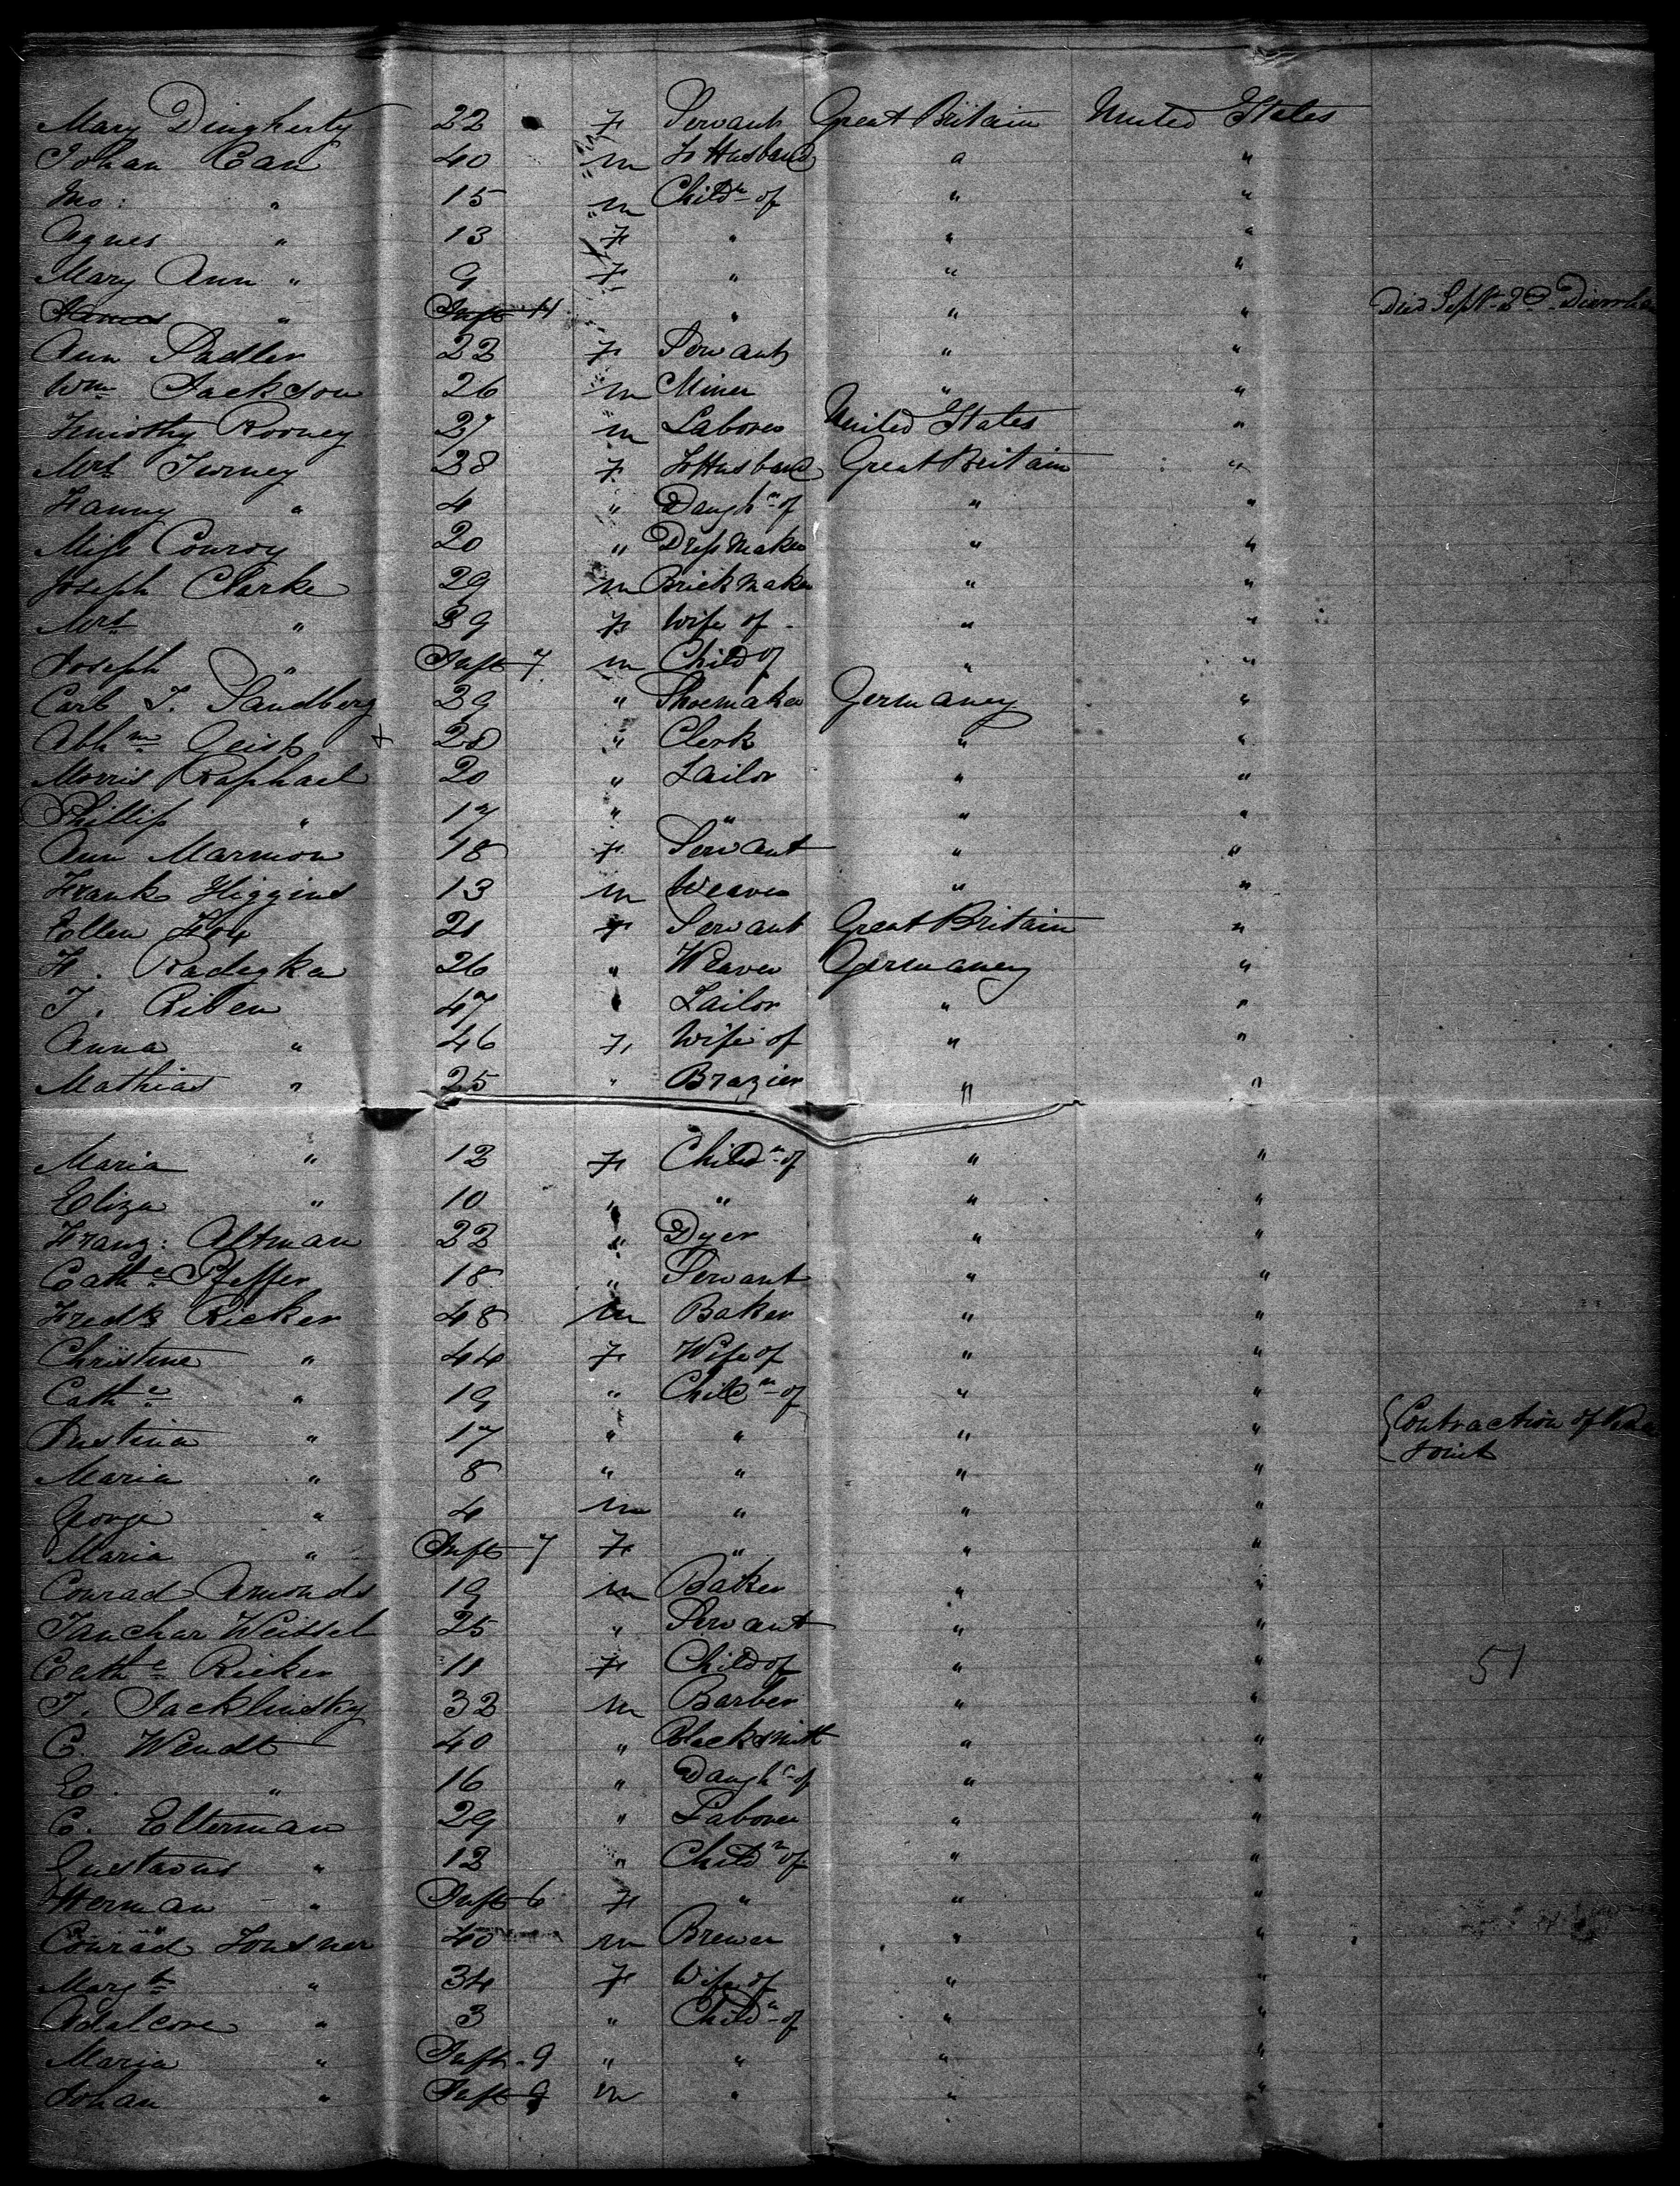 Mary Dingherty 22 F Servant Great Britain United States
Johan Can 40 m To Husband " "
Jno: " 15 " m Childn of " "
Agnes " 13 F " " "
Mary Ann " 9 F " " "
James " Inft 11 " " " Died Sept 2d Diarrhea
Ann Sadler 22 F Servant " "
Wm Jackson 26 m Miner " "
Timothy Rooney 27 m Laborer United States "
Mrs Turney 28 F To Husband Great Britain "
Fanny " 4 " Daughr of " "
Miss Conroy 20 " Dress Maker " "
Joseph Clarke 29 m Brick maker " "
Mrs " 29 F Wife of " "
Joseph " Inft 7 m Child of " "
Carl J. Sandberg 29 " Shoemaker Germaney "
Abhm Geist 20 " Clerk " "
Morris Raphael 20 " Tailor " "
Phillip " 17 " " " "
Ann Marmon 18 F Servant " "
Frank Higgins 13 m Weaver " "
Ellen Fox 21 F Servant Great Britain "
F. Radegka 26 " Weaver Germaney "
J. Riben 47 Tailor " "
Anna " 46 F Wife of " "
Mathias " 25 " Brazier " "
Maria " 12 F Childn of " "
Eliza " 10 " " " "
Franz: Altman 22 " Dyer " "
Cathe Pfeffer 18 " Servant " "
Fredk Ricker 48 m Baker " "
Christine " 44 F Wife of " "
Cathe " 19 " Childn of " "
" 17 " " " " Contraction of Knee Joint
Maria " 8 " " " "
George " 4 m " " "
Maria " Inft 7 F " " "
Conrad Amonds 19 m Baker " "
Weissel 25 " Servant " "
Cathe Ricker 11 F Child of " " 51
J. Jacklinsky 32 m Barber " "
C. Wendt 40 " Blacksmith " "
E. " 16 " Daughr of " "
C. Elterman 29 " Laborer " "
Gustavus " 12 " Childn of " "
Herman " Inft 6 F " " "
Conrad 40 m Brewer " "
Margt " 34 F Wife of " "
" 3 " Childn of " "
Maria " Inft 9 " " " "
Johan " Inft 9 m " " "